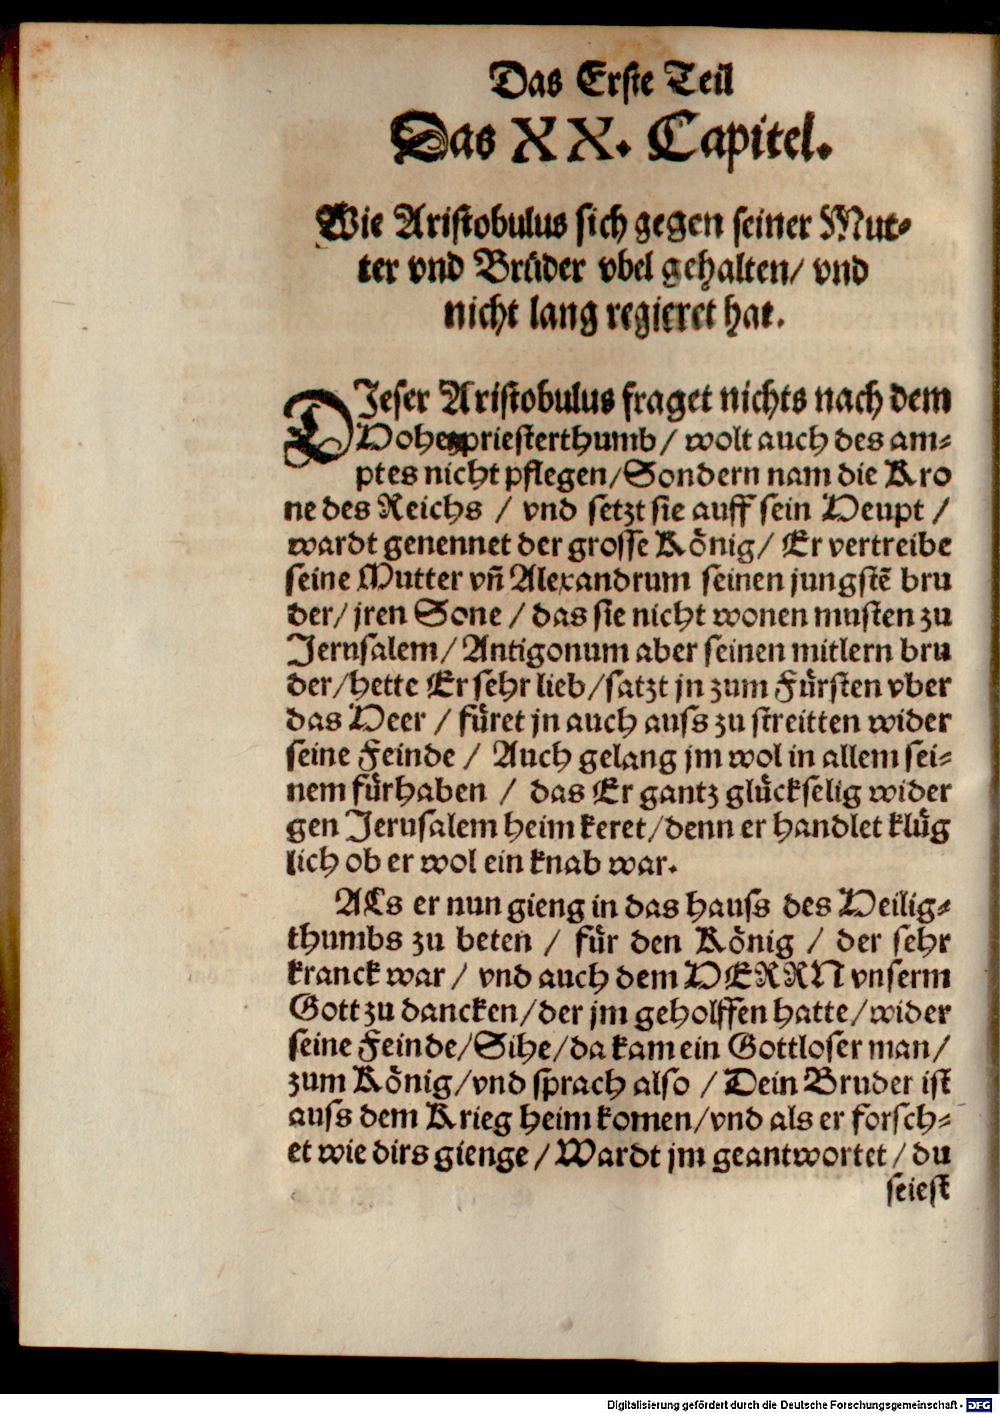 Das Erste Teil
Das XX. Capitel.
Wie Aristobulus sich gegen seiner Mut-
ter vnd Brüder vbel gehalten/ vnd
nicht lang regieret hat.
DIeser Aristobulus fraget nichts nach dem
Hohenpriesterthumb / wolt auch des am-
ptes nicht pflegen/Sondern nam die Kro
ne des Reichs / vnd setzt sie auff sein Heupt /
wardt genennet der grosse König/ Er vertreibe
seine Mutter vñ Alexandrum seinen jungstē bru
der/ jren Sone / das sie nicht wonen musten zu
Jerusalem/ Antigonum aber seinen mitlern bru
der/hette Er sehr lieb/satzt jn zum Fürsten vber
das Heer / füret jn auch auss zu streitten wider
seine Feinde / Auch gelang jm wol in allem sei-
nem fürhaben / das Er gantz glückselig wider
gen Jerusalem heim keret/denn er handlet klüg
lich ob er wol ein knab war.
ALs er nun gieng in das hauss des Heilig-
thumbs zu beten / für den König / der sehr
kranck war / vnd auch dem HERRN vnserm
Gott zu dancken/der jm geholffen hatte/wider
seine Feinde/Sihe/da kam ein Gottloser man/
zum König/vnd sprach also / Dein Bruder ist
auss dem Krieg heim komen/vnd als er forsch-
et wie dirs gienge / Wardt jm geantwortet / du
seiest
Digitalisierung gefördert durch die Deutsche Forschungsgemeinschaft - DFG